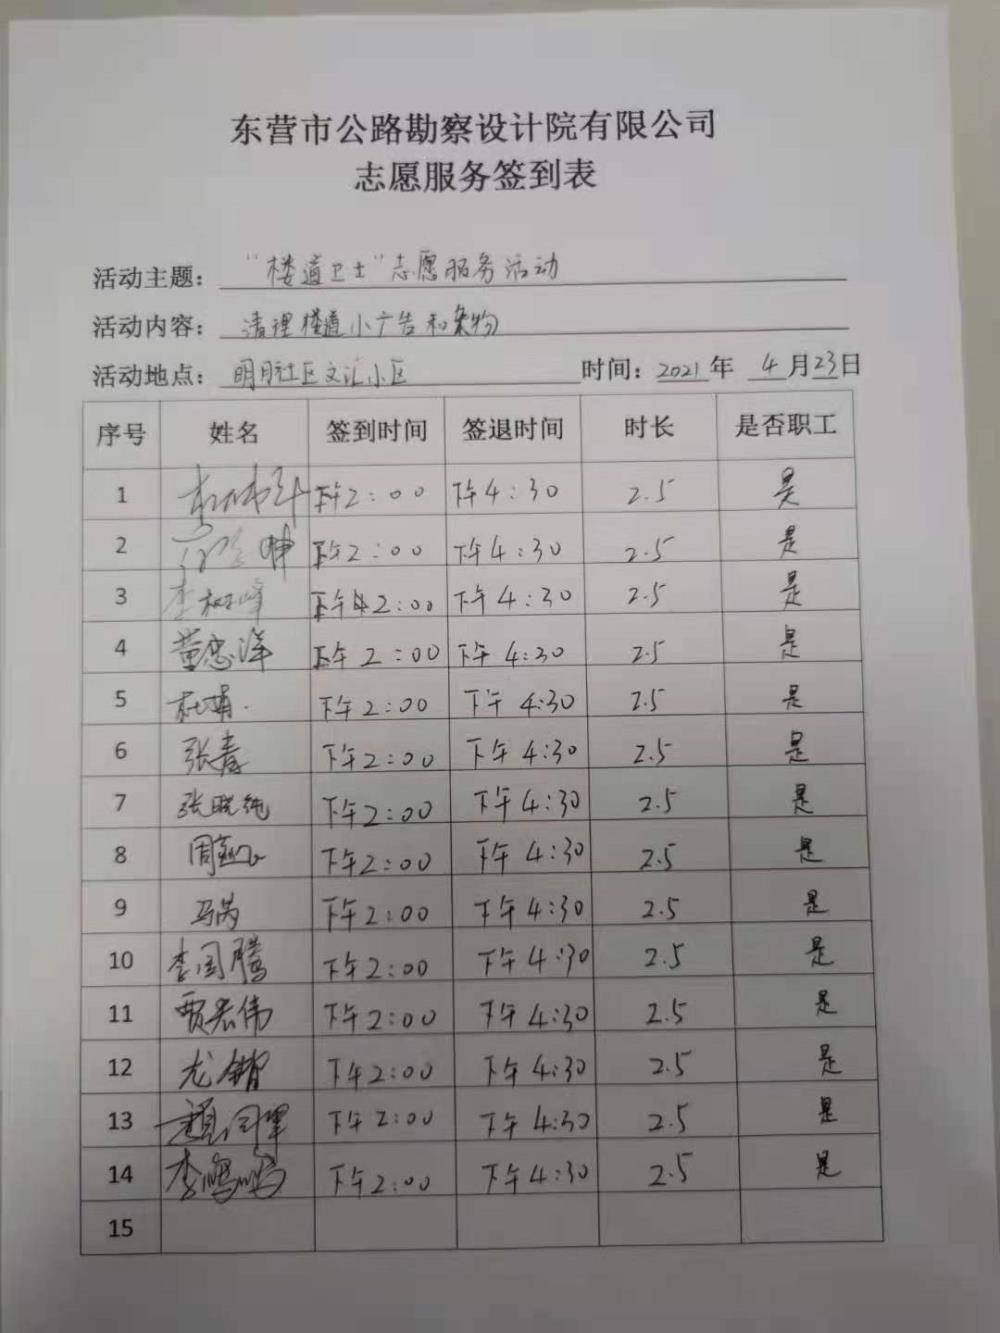 东营市公路勘察设计院有限公司
志愿服务签到表
活动主题：“楼道卫士”志愿服务活动
活动内容：清理楼道小广告和杂物
活动地点：明月社区文汇小区 时间：2021年 4月23日
序号 姓名 签到时间 签退时间 时长 是否职工
1 下午2:00 下午4:30 2.5 是
2 下午2:00 下午4:30 2.5 是
3 李树峰 下午2:00 下午4:30 2.5 是
4 董忠洋 下午2:00 下午4:30 2.5 是
5 下午2:00 下午4:30 2.5 是
6 张青 下午2:00 下午4:30 2.5 是
7 张晓纯 下午2:00 下午4:30 2.5 是
8 下午2:00 下午4:30 2.5 是
9 下午2:00 下午4:30 2.5 是
10 李国腾 下午2:00 下午4:30 2.5 是
11 贾宏伟 下午2:00 下午4:30 2.5 是
12 下午2:00 下午4:30 2.5 是
13 下午2:00 下午4:30 2.5 是
14 李鹏鹏 下午2:00 下午4:30 2.5 是
15